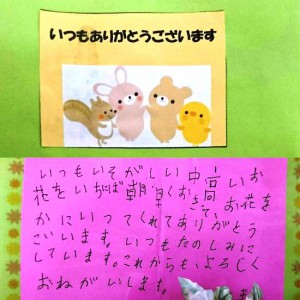 いつもありがとうございます
いつもいそがしい中高いお
花をいちば朝早くおきて、お花を
かにいってくれてありがとう
ございます。いつもたのしみに
しています。これからも、よろしく
おねがいします。